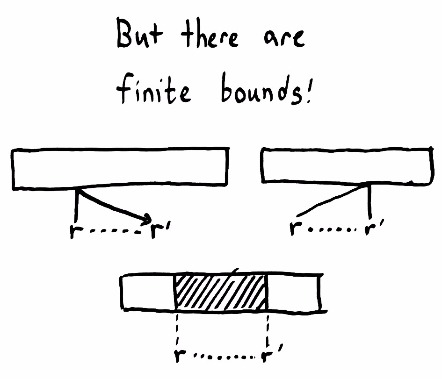 But there are
finite bounds!
r ...... r' r ...... r'
r ........ r'